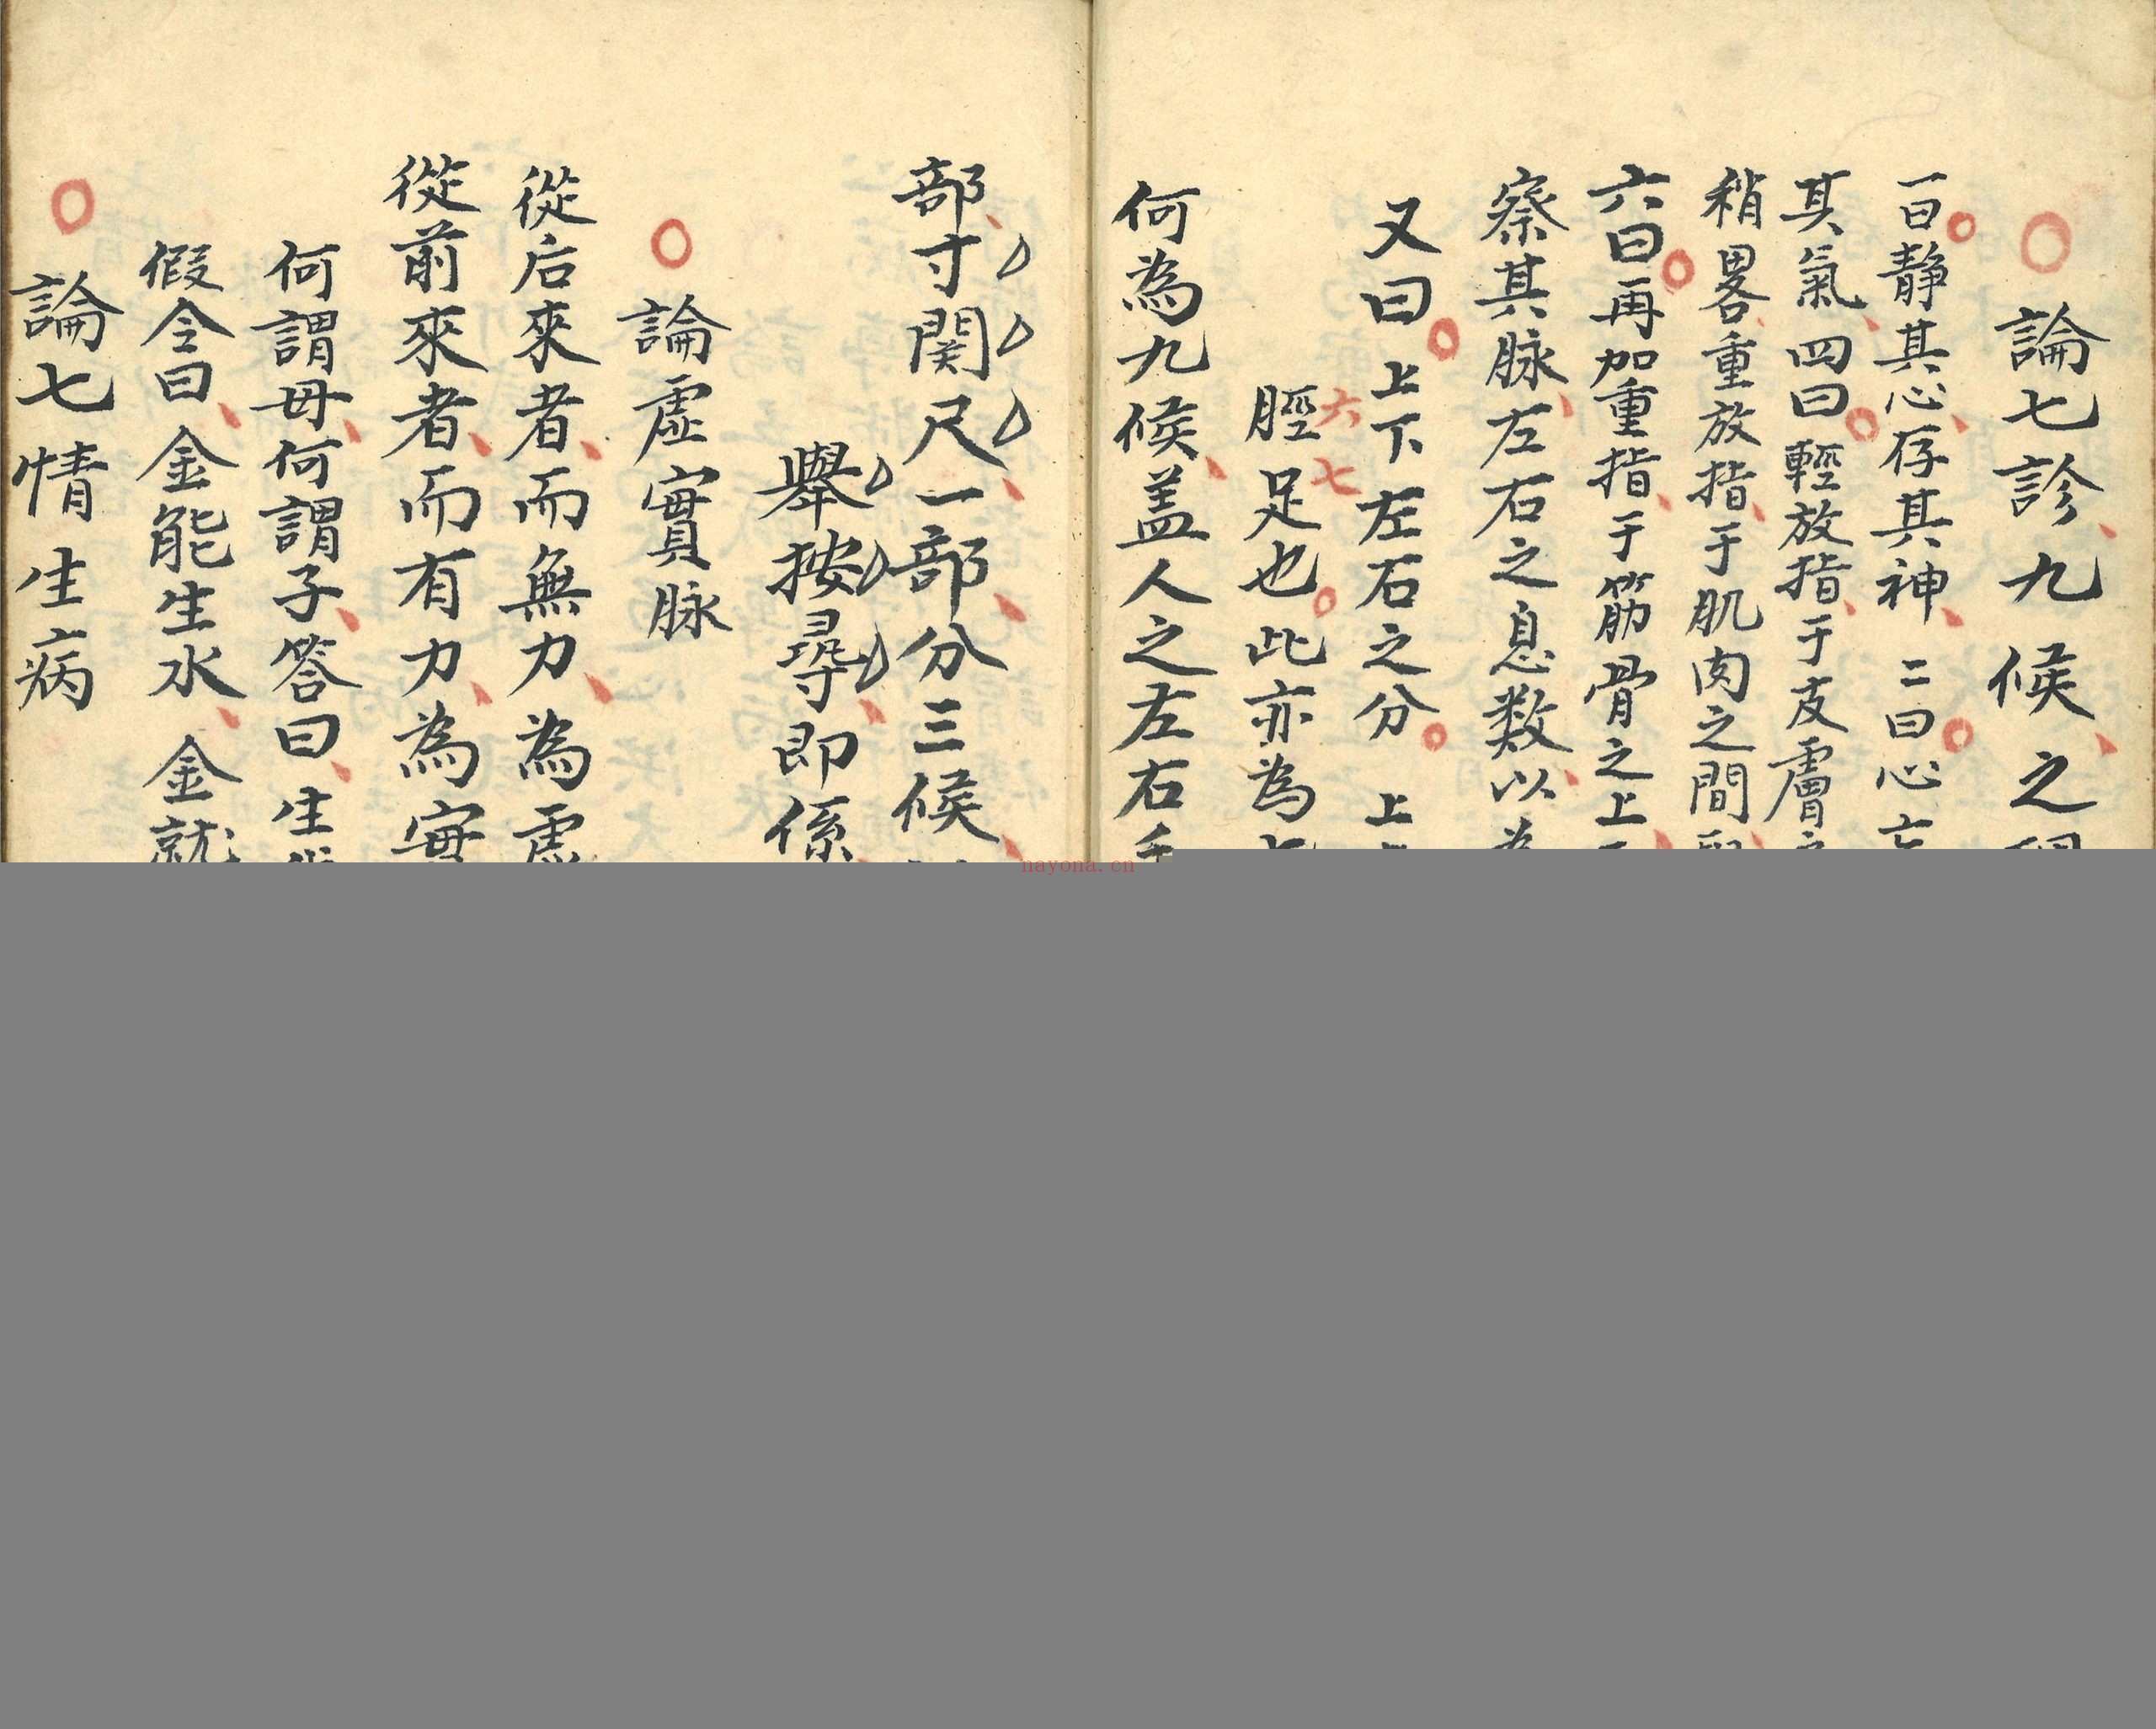 論七診九候之
一曰靜其心存其神 二曰心忘
其氣四曰輕放指于皮膚
稍畧重放指于肌肉之間
六曰再加重指于筋骨之上
察其脉左右之息数以為
又曰上下左右之分 上
六七
脛足也此亦為七
何為九候盖人之左右手
部寸関尺一部分三候
舉按尋即係
論虛實脉
從后來者而無力為虛
從前來者而有力為實
何謂母何謂子答曰生我
假令曰金能生水金就
論七情生病
nayona.cn